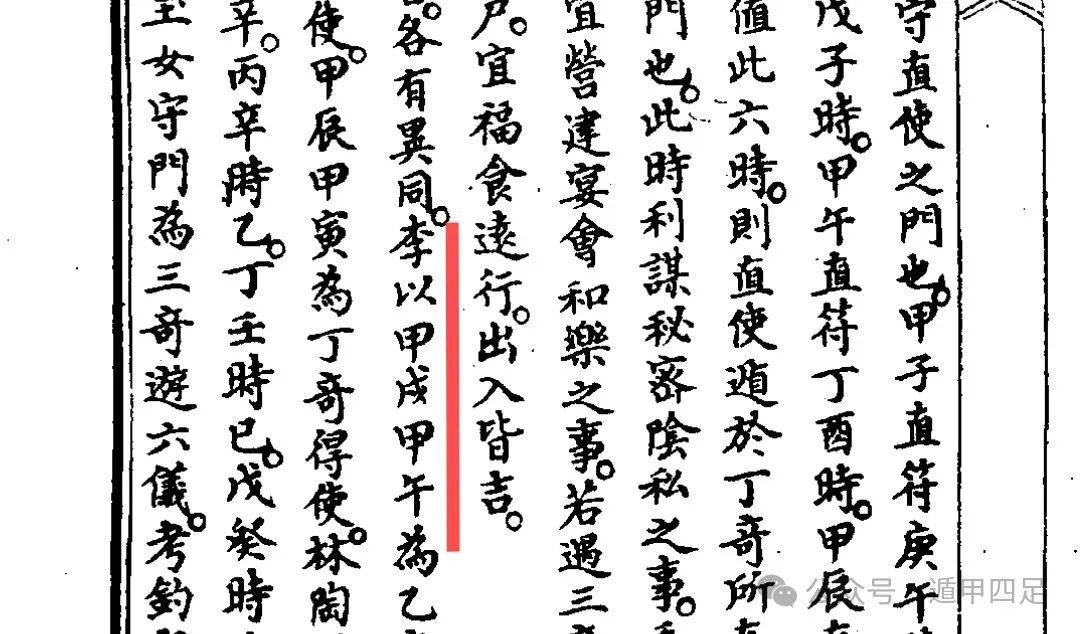 守直使之門也。甲子直符庚午
戊子時。甲午直符丁酉時。甲辰
值此六時。則直使遁於丁奇所
門也。此時利謀秘密陰私之事。
宜營建宴會和樂之事。若遇三
戶。宜福食遠行。出入皆吉。
各有異同。李以甲戌甲午為乙
使。甲辰甲寅為丁奇得使。林陶
辛。丙辛時乙。丁壬時巳。戊癸時
玉女守門為三奇遊六儀。考釣
公众号 遁甲四足